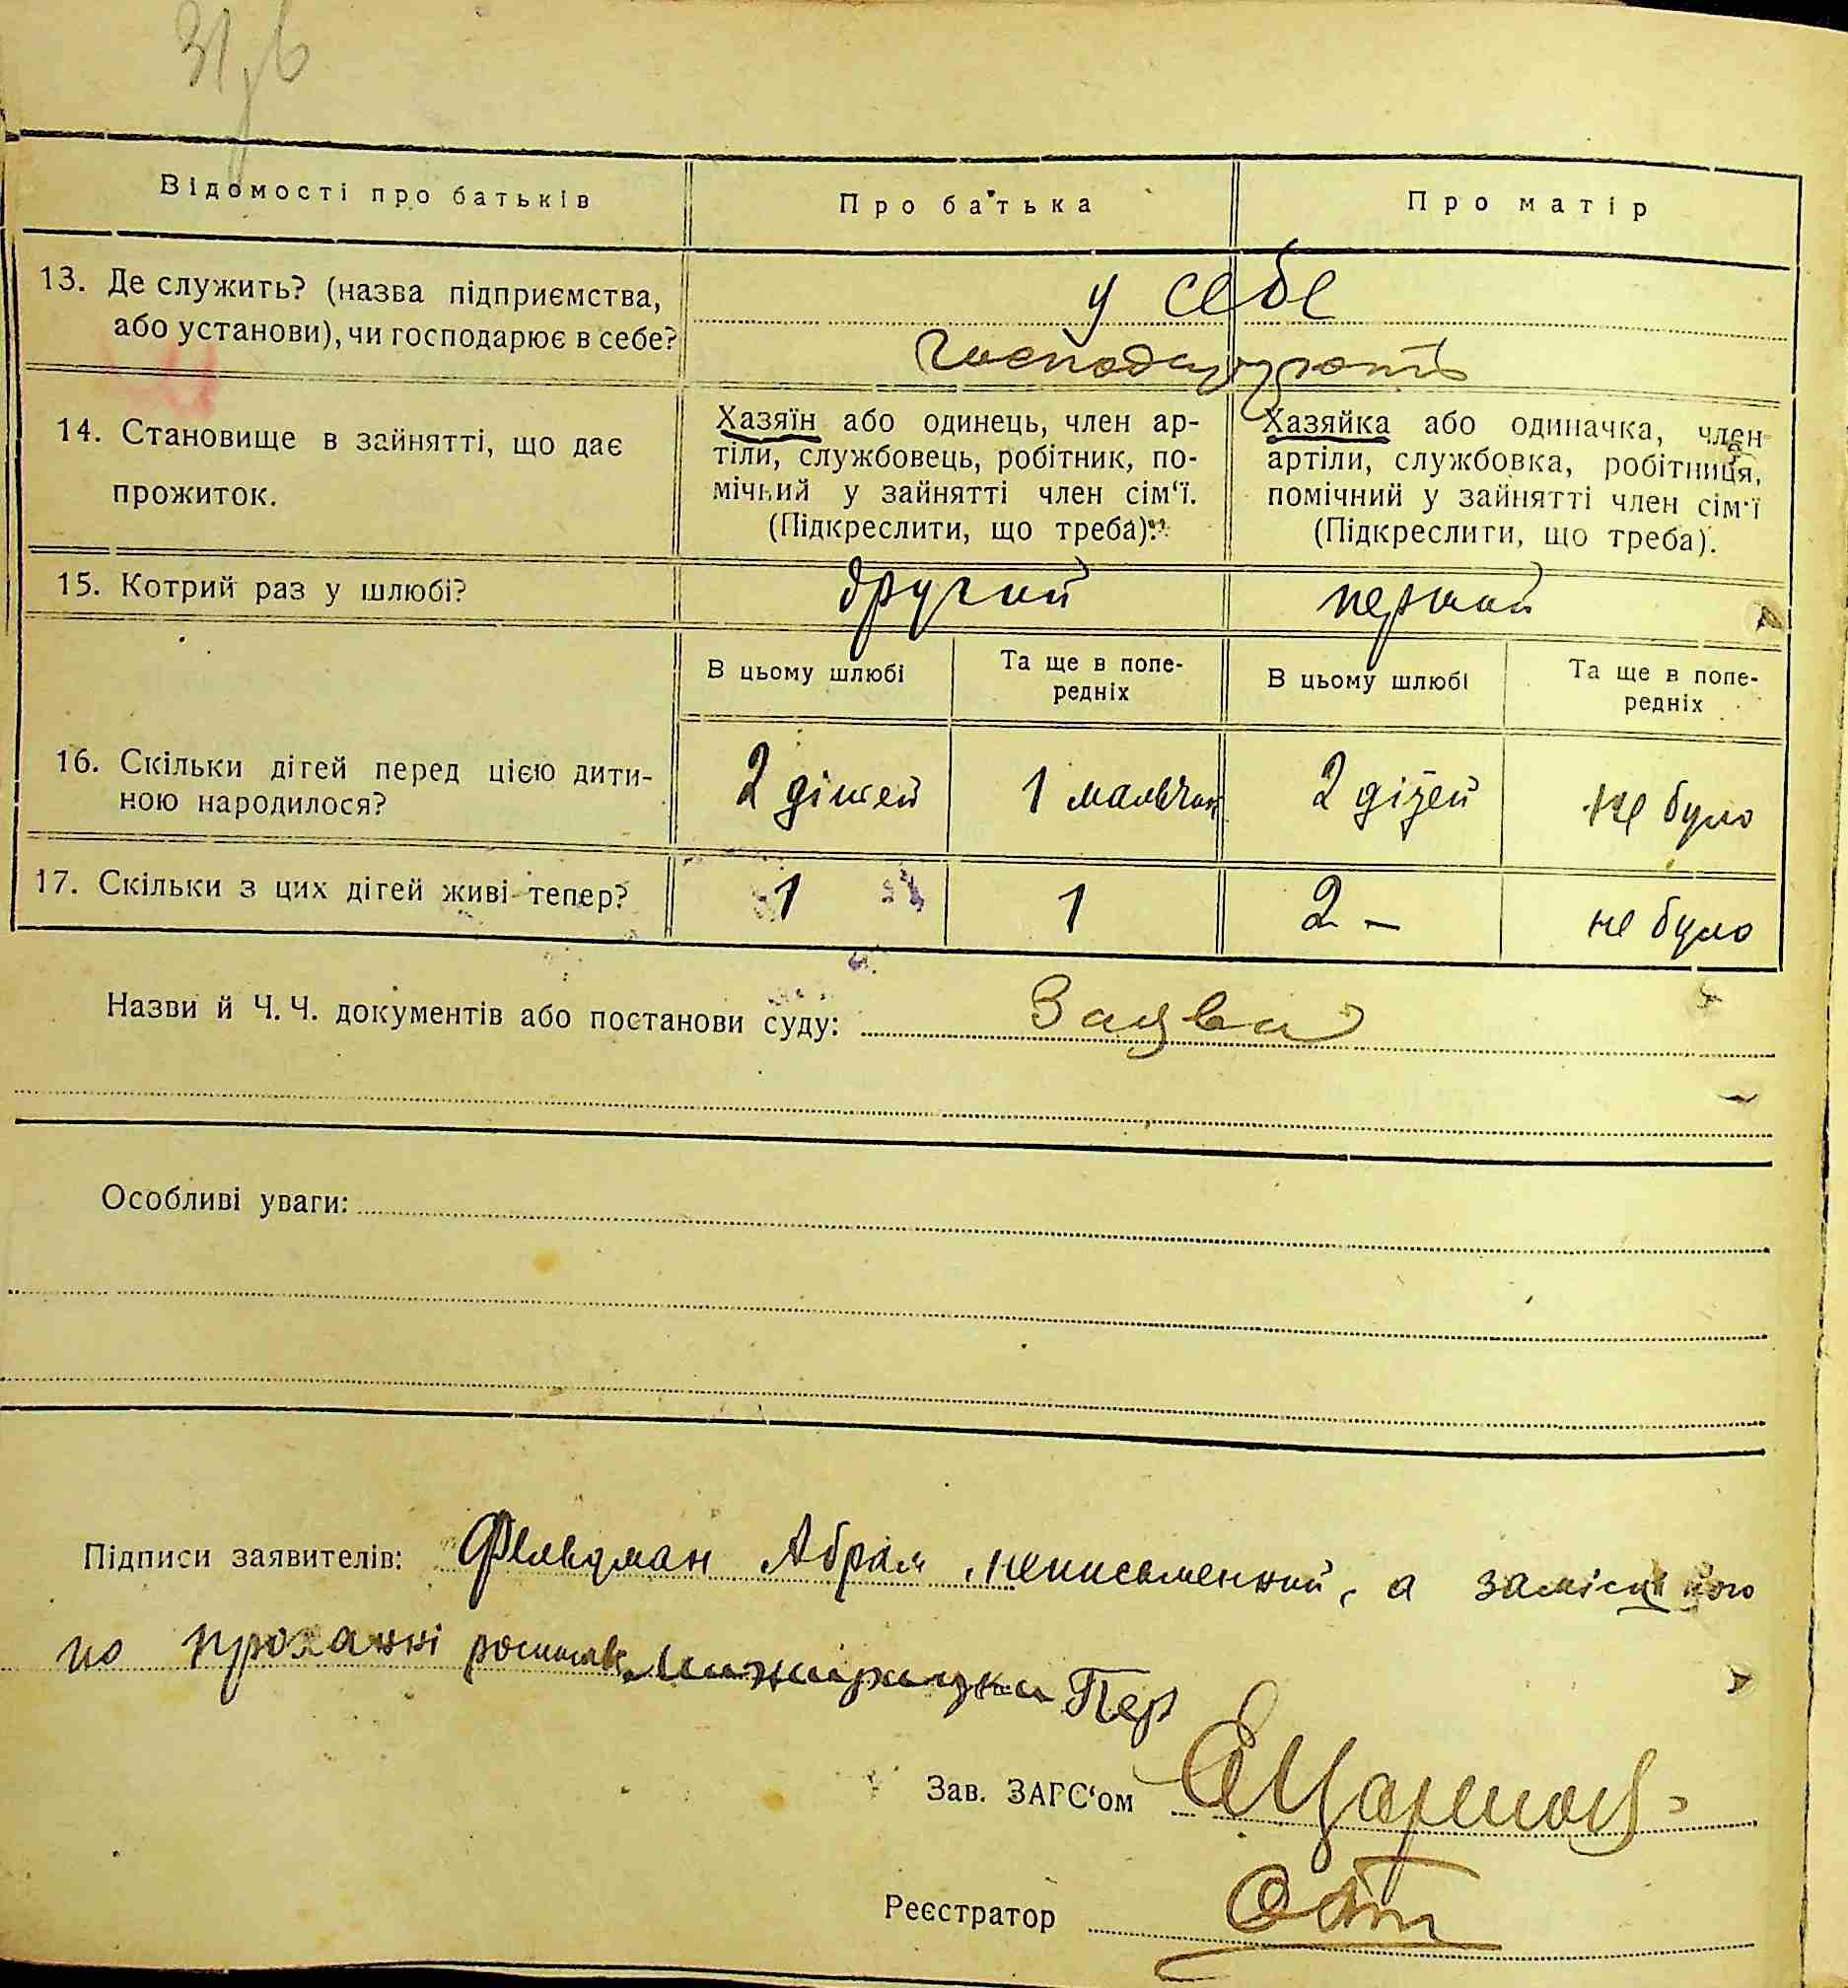 31,б
Відомості про батьків Про батька Про матір
13. Де служить? (назва підприємства, у себе
або установи), чи господарює в себе? господарюють
14. Становище в зайнятті, що дає
прожиток.
Хазяїн або одинець, член ар-
тіли, службовець, робітник, по-
мічний у зайнятті член сім‘ї.
(Підкреслити, що треба).
Хазяйка або одиначка, член
артіли, службовка, робітниця,
помічний у зайнятті член сім‘ї
(Підкреслити, що треба).
15. Котрий раз у шлюбі? другий перший
В цьому шлюбі Та ще в попе-
редніх В цьому шлюбі Та ще в попе-
редніх
16. Скільки дітей перед цією дити-
ною народилося? 2 дітей 1 мальчик 2 дітей не було
17. Скільки з цих дітей живі тепер? 1 1 2 – не було
Назви й Ч. Ч. документів або постанови суду: Заява
Особливі уваги:
Підписи заявителів: Фельдман Абрам, неписьменний, а замісць його
по проханні росписавс Пер
Зав. ЗАГС‘ом
Реєстратор